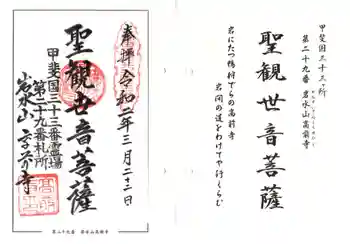 甲斐国三十三ヶ所
第二十九番 岩水山高前寺
聖観世音菩薩
岩にたつ鴨狩でらの高前寺
岩間の道をわけてや行くらむ
奉拝 令和二年三月二十二日
聖観世音菩薩
甲斐国三十三番霊場
第二十九番札所
岩水山 高前寺
第二十九番 岩水山高前寺